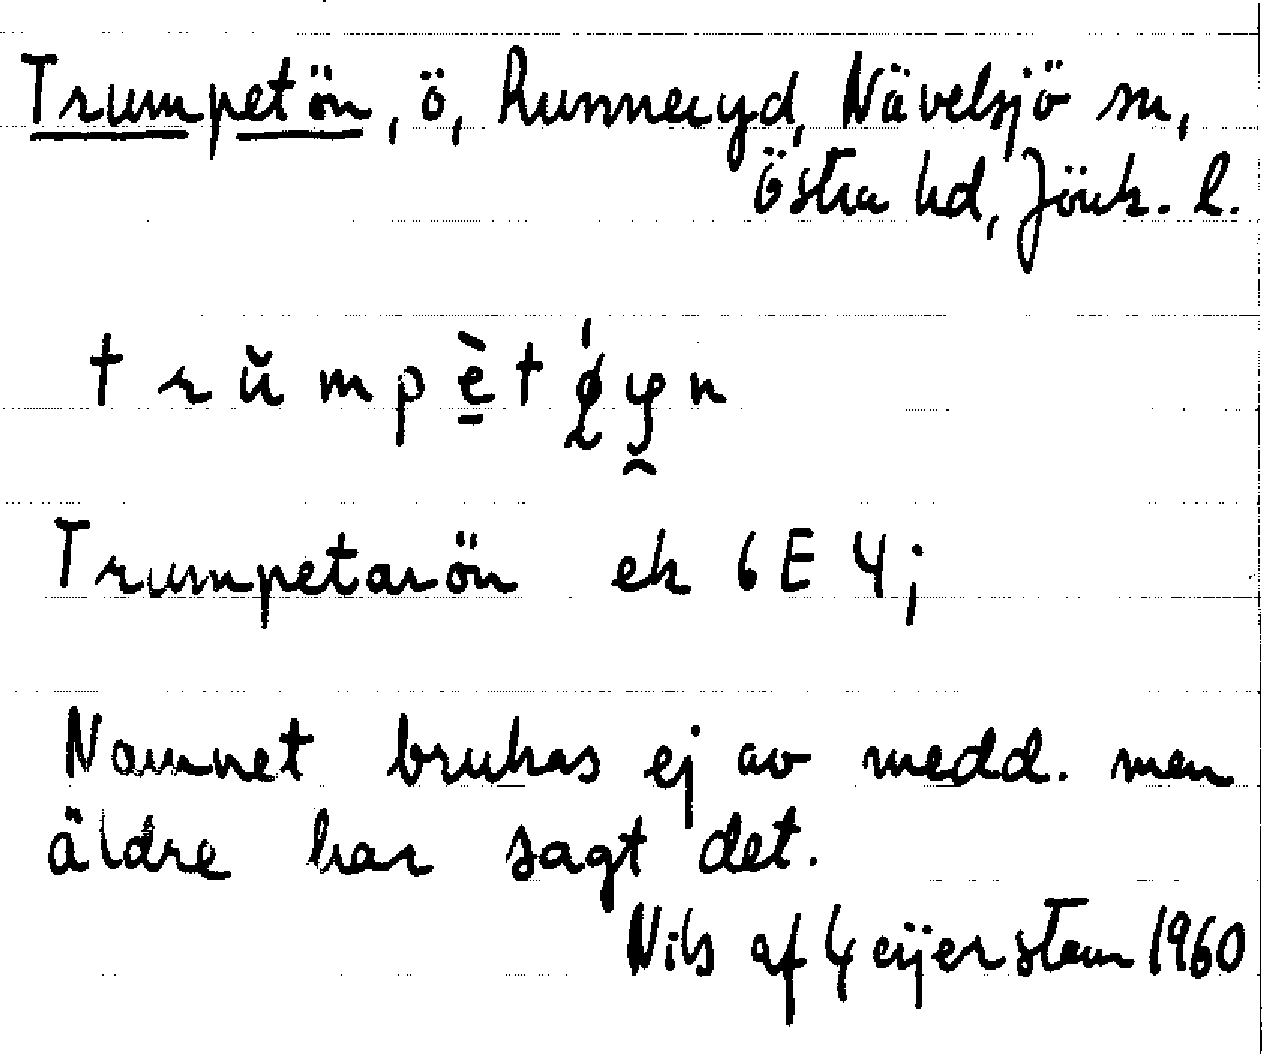 Trumpetön, ö, Runneryd, Nävelsjö sn,
Östra hd, Jönk. l.
trŭmpèt
Trumpetarön ek 6E4;
Namnet brukas ej av medd. men
äldre har sagt det.
Nils af Geijerstam 1960